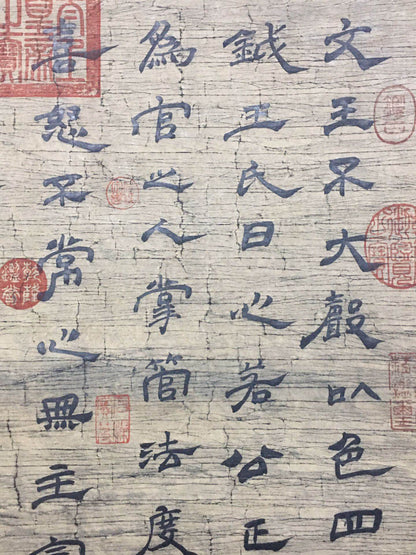 文王不大聲以色四
鉞王氏曰心若公正
為官之人掌管法度
喜怒不常心無主